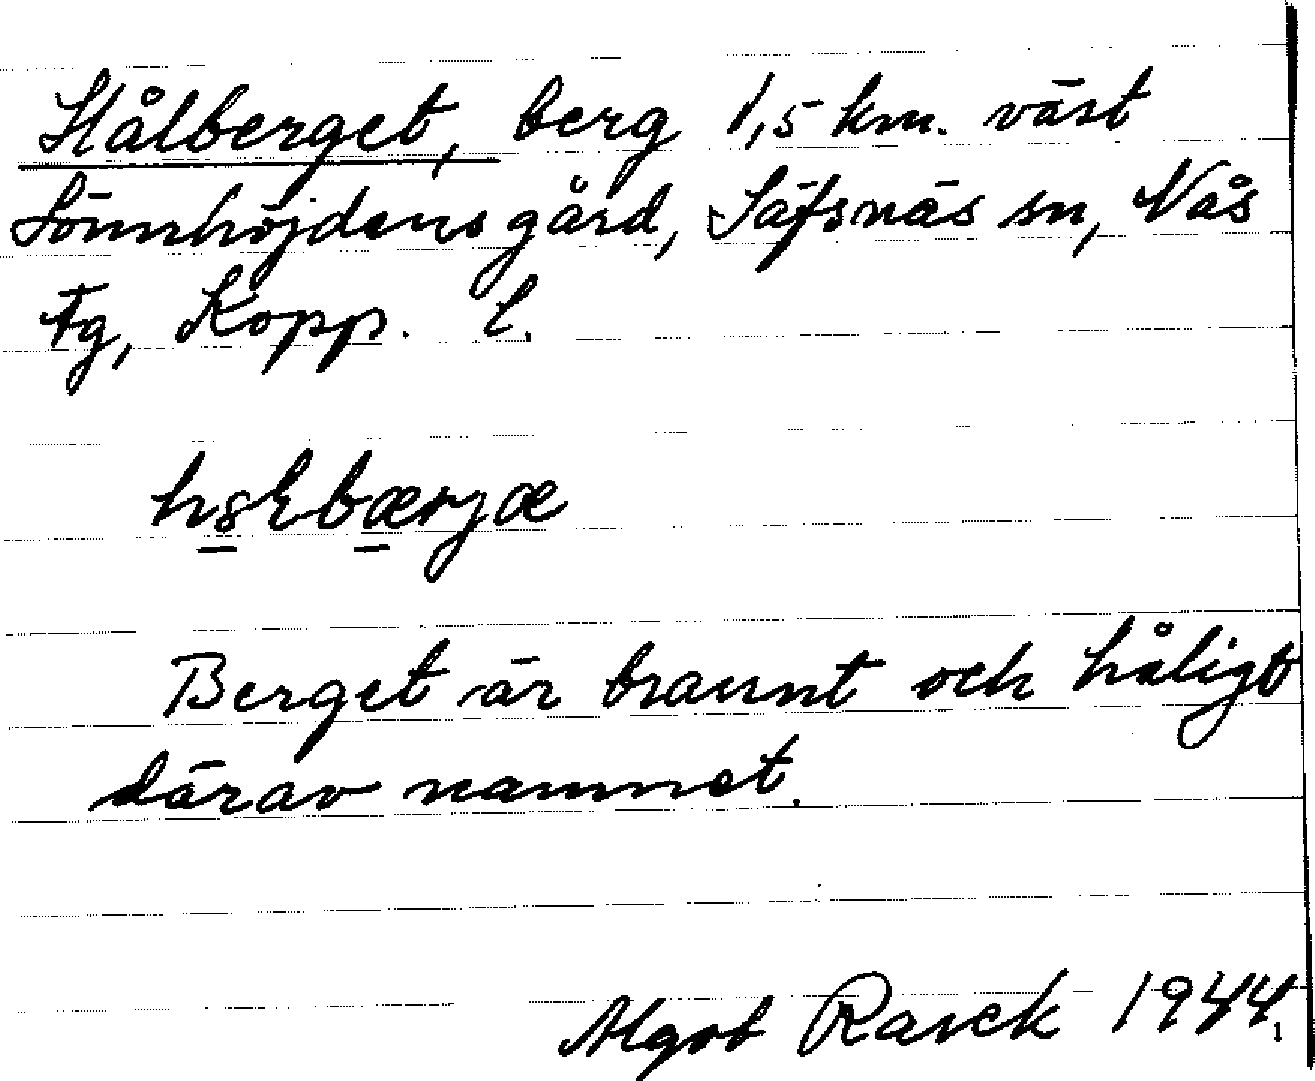 Hålberget, berg 1,5 km. väst
Sönnhöjdens gård, Säfsnäs sn, Nås
Fg, Kopp. l.
Berget är brannt och håligt
därav namnet.
Algot Rasck 1944.